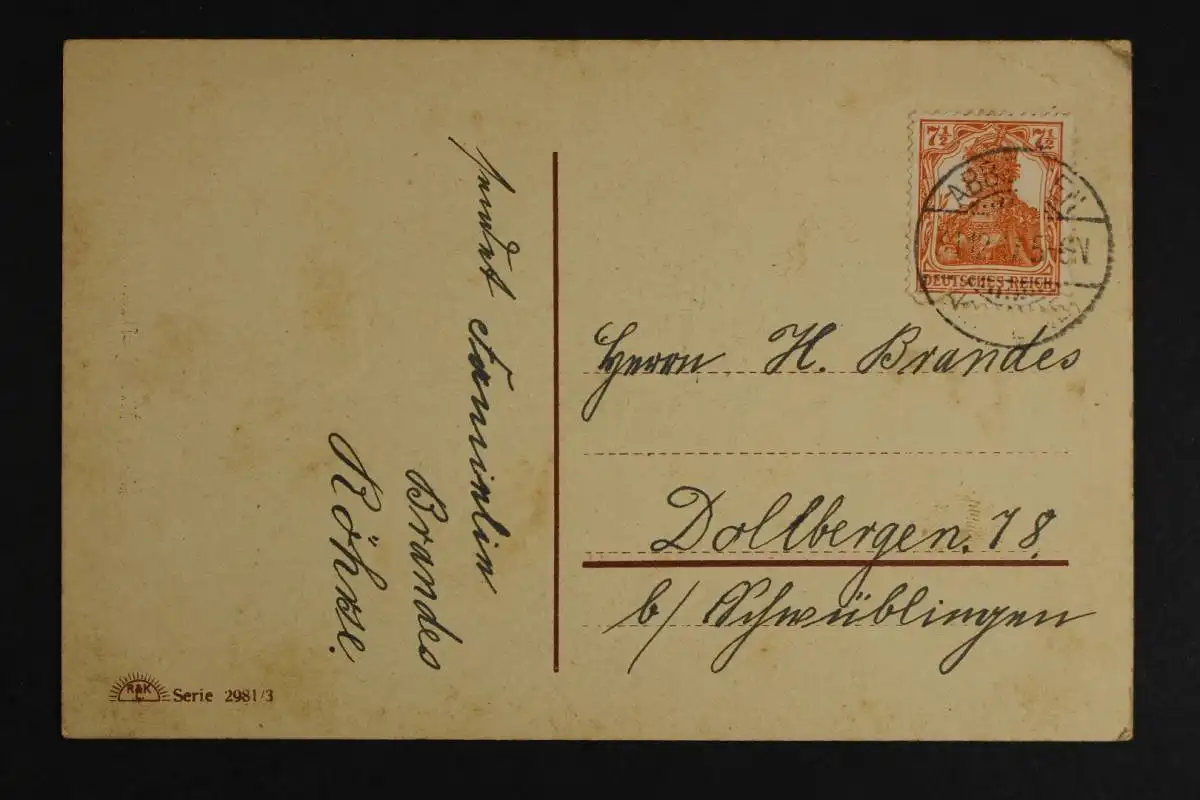 sendet
Brandes
Röhrse.
7½ 7½
DEUTSCHES REICH
5-6N
Herrn H. Brandes
Dollbergen. 78.
b/ Schwüblingen
R&K
L
Serie 2981/3